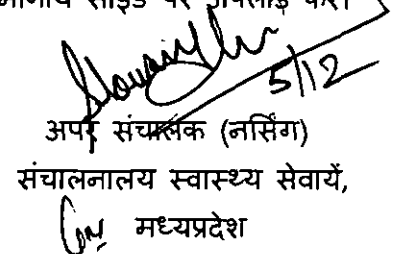 साइड पर अपलोड करें।
5/12
अपर संचालक (नर्सिंग)
संचालनालय स्वास्थ्य सेवायें,
मध्यप्रदेश